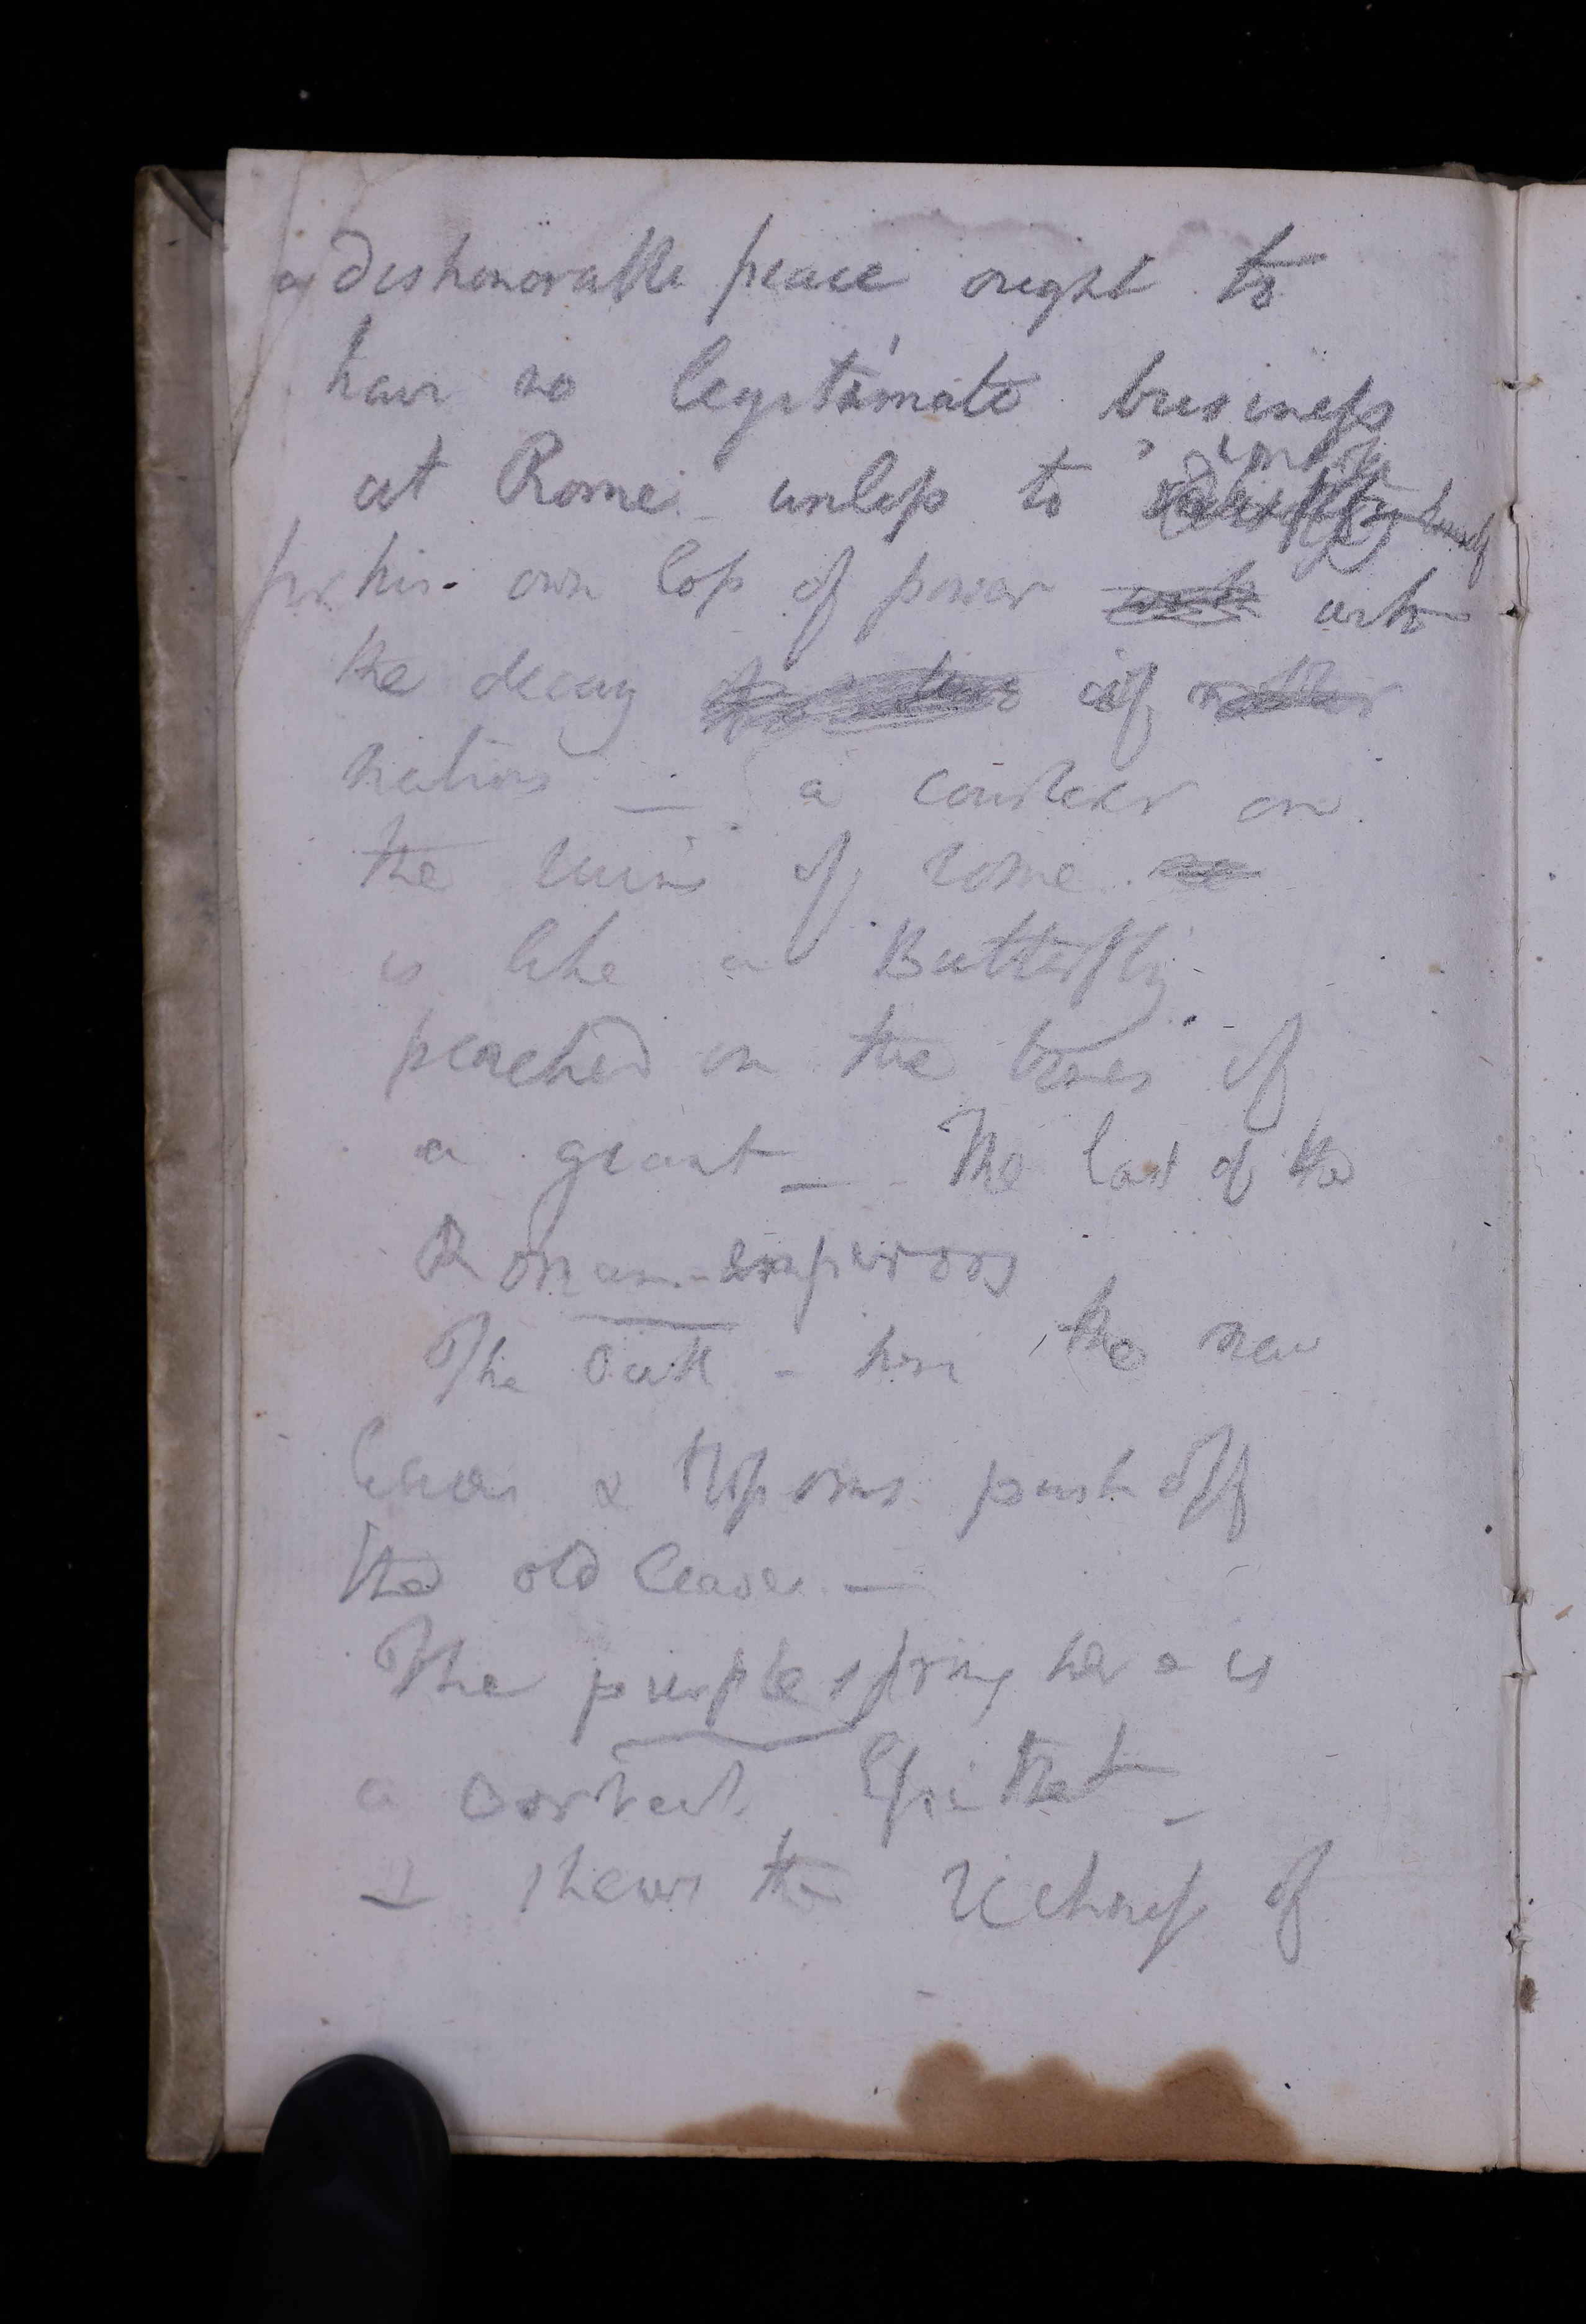 a dishonorable peace ought to
have no legitimate business
at Rome unless to console himself
for his own loss of power with
the decay of
nations — a courtier on
the ruins of rome
is like a Butterfly
perched on the bones of
a giant — The last of the
Roman-emperors
The Oak - here the new
leaves & blossoms push off
the old leaves —
The purple spring here is
a correct Epithet —
& shews the richness of